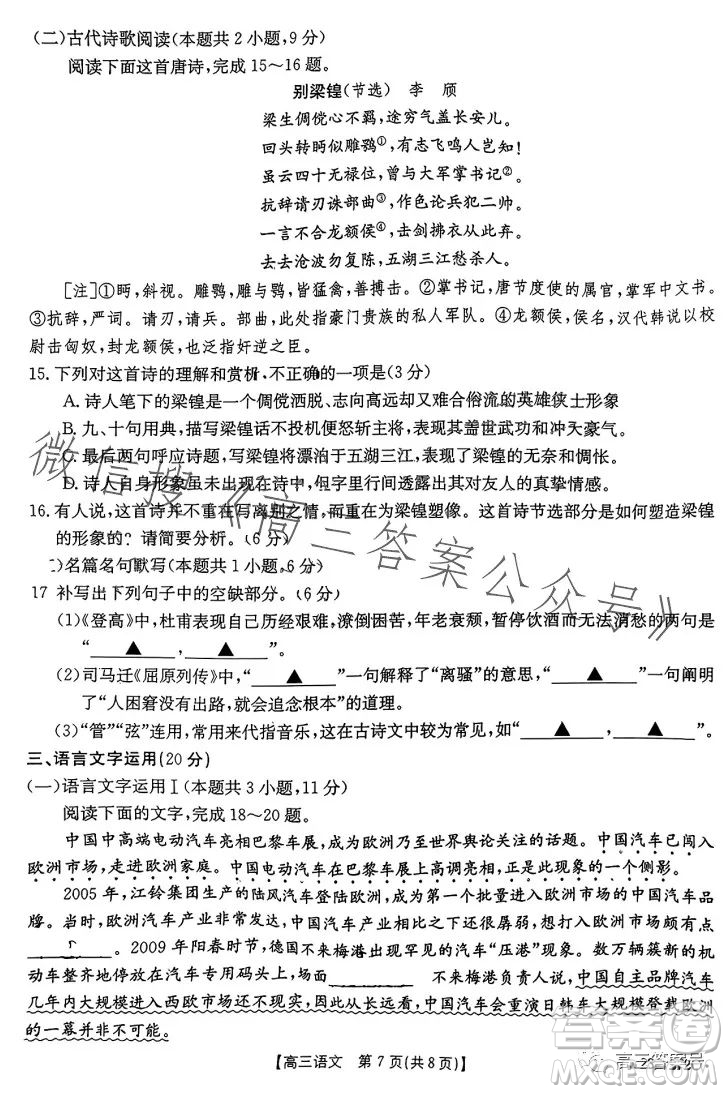 (二)古代诗歌阅读(本题共2小题,9分)
阅读下面这首唐诗,完成15~16题。
别梁锽(节选) 李 颀
梁生倜傥心不羁,途穷气盖长安儿。
回头转眄似雕鹗①,有志飞鸣人岂知!
虽云四十无禄位,曾与大军掌书记②。
抗辞请刃诛部曲③,作色论兵犯二帅。
一言不合龙额侯④,击剑拂衣从弃置。
去去沧波勿复陈,五湖三江愁杀人。
[注]①眄,斜视。雕鹗,雕与鹗,皆猛禽,善搏击。②掌书记,唐节度使的属官,掌军中文书。
③抗辞,严词。请刃,请兵。部曲,此处指豪门贵族的私人军队。④龙额侯,侯名,汉代韩说以校
尉击匈奴,封龙额侯,也泛指奸逆之臣。
15.下列对这首诗的理解和赏析,不正确的一项是(3分)
A.诗人笔下的梁锽是一个倜傥洒脱、志向高远却又难合俗流的英雄侠士形象
B.九、十句用典,描写梁锽不话不投机便怒斩主将,表现了他的盖世武功和冲天豪气。
C.最后两句呼应诗题,写梁锽将漂泊于五湖三江,表达了梁锽的无奈和惆怅。
D.诗人自身形象虽未出现在诗中,但字里行间体现出诗人对友人的真挚情感。
16.有人说,这首诗并不重在写离别之情,而重在为梁锽塑像。这首诗节选部分是如何塑造梁锽
的形象的?请简要分析。(6分)
)名篇名句默写(本题共1小题,6分)
17 补写出下列句子中的空缺部分。(6分)
(1)《登高》中,杜甫写自己历经艰难,潦倒困苦,年老衰颓,暂停饮酒而无法消愁的两句是
“ ▲ , ▲ ”。
(2)司马迁《屈原列传》中,“ ▲ ”一句解释了“离骚”的意思,“ ▲ ”一句阐明
了“人困窘没有出路,就会追念根本”的道理。
(3)“管”“弦”连用,常用来代指音乐,这在古诗文中较为常见,如“ ▲ , ▲ ”。
三、语言文字运用(20分)
(一)语言文字运用Ⅰ(本题共3小题,11分)
阅读下面的文字,完成18~20题。
中国中高端电动汽车亮相巴黎车展,成为欧洲乃至世界舆论关注的话题。中国汽车已闯入
欧洲市场,走进欧洲家庭。中国电动汽车在巴黎车展上高调亮相,正是此现象的一个侧影。
2005年,江铃集团生产的陆风汽车登陆欧洲,成为第一个批量进入欧洲市场的中国汽车品
牌。当时,欧洲汽车产业非常发达,对比之下,中国汽车产业规模、产业基础还很孱弱,前行之路
。2009年阳春时节,德国不来梅港出现罕见的汽车“压港”现象。数万辆簇新的机
动车整齐地停放在汽车专用码头上,场面 不来梅港负责人说,中国自主品牌汽车
几年内大规模进入西欧市场还不现实,但从长远看,中国汽车会重演日韩车大规模登陆欧洲
的一幕并非不可能。
【高三语文 第7页(共8页)】
微信搜《高三答案公众号》
答案圈
高三答案号